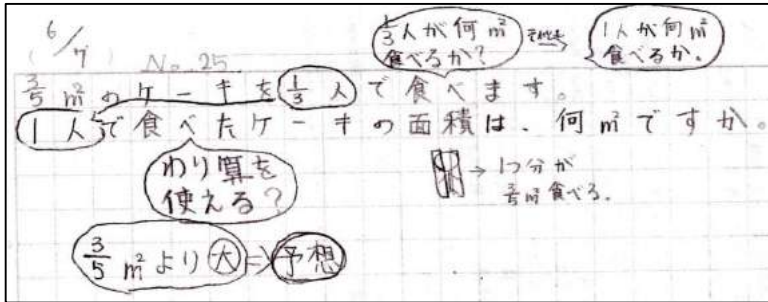 6/7
No.25
1/3人が何㎡
食べるか?
それとも
1人が何㎡
食べるか。
3/5㎡のケーキを1/3人で食べます。
1人で食べたケーキの面積は、何㎡ですか。
わり算を
使える?
→1つ分が
3/5㎡食べる。
3/5㎡より大⇒予想